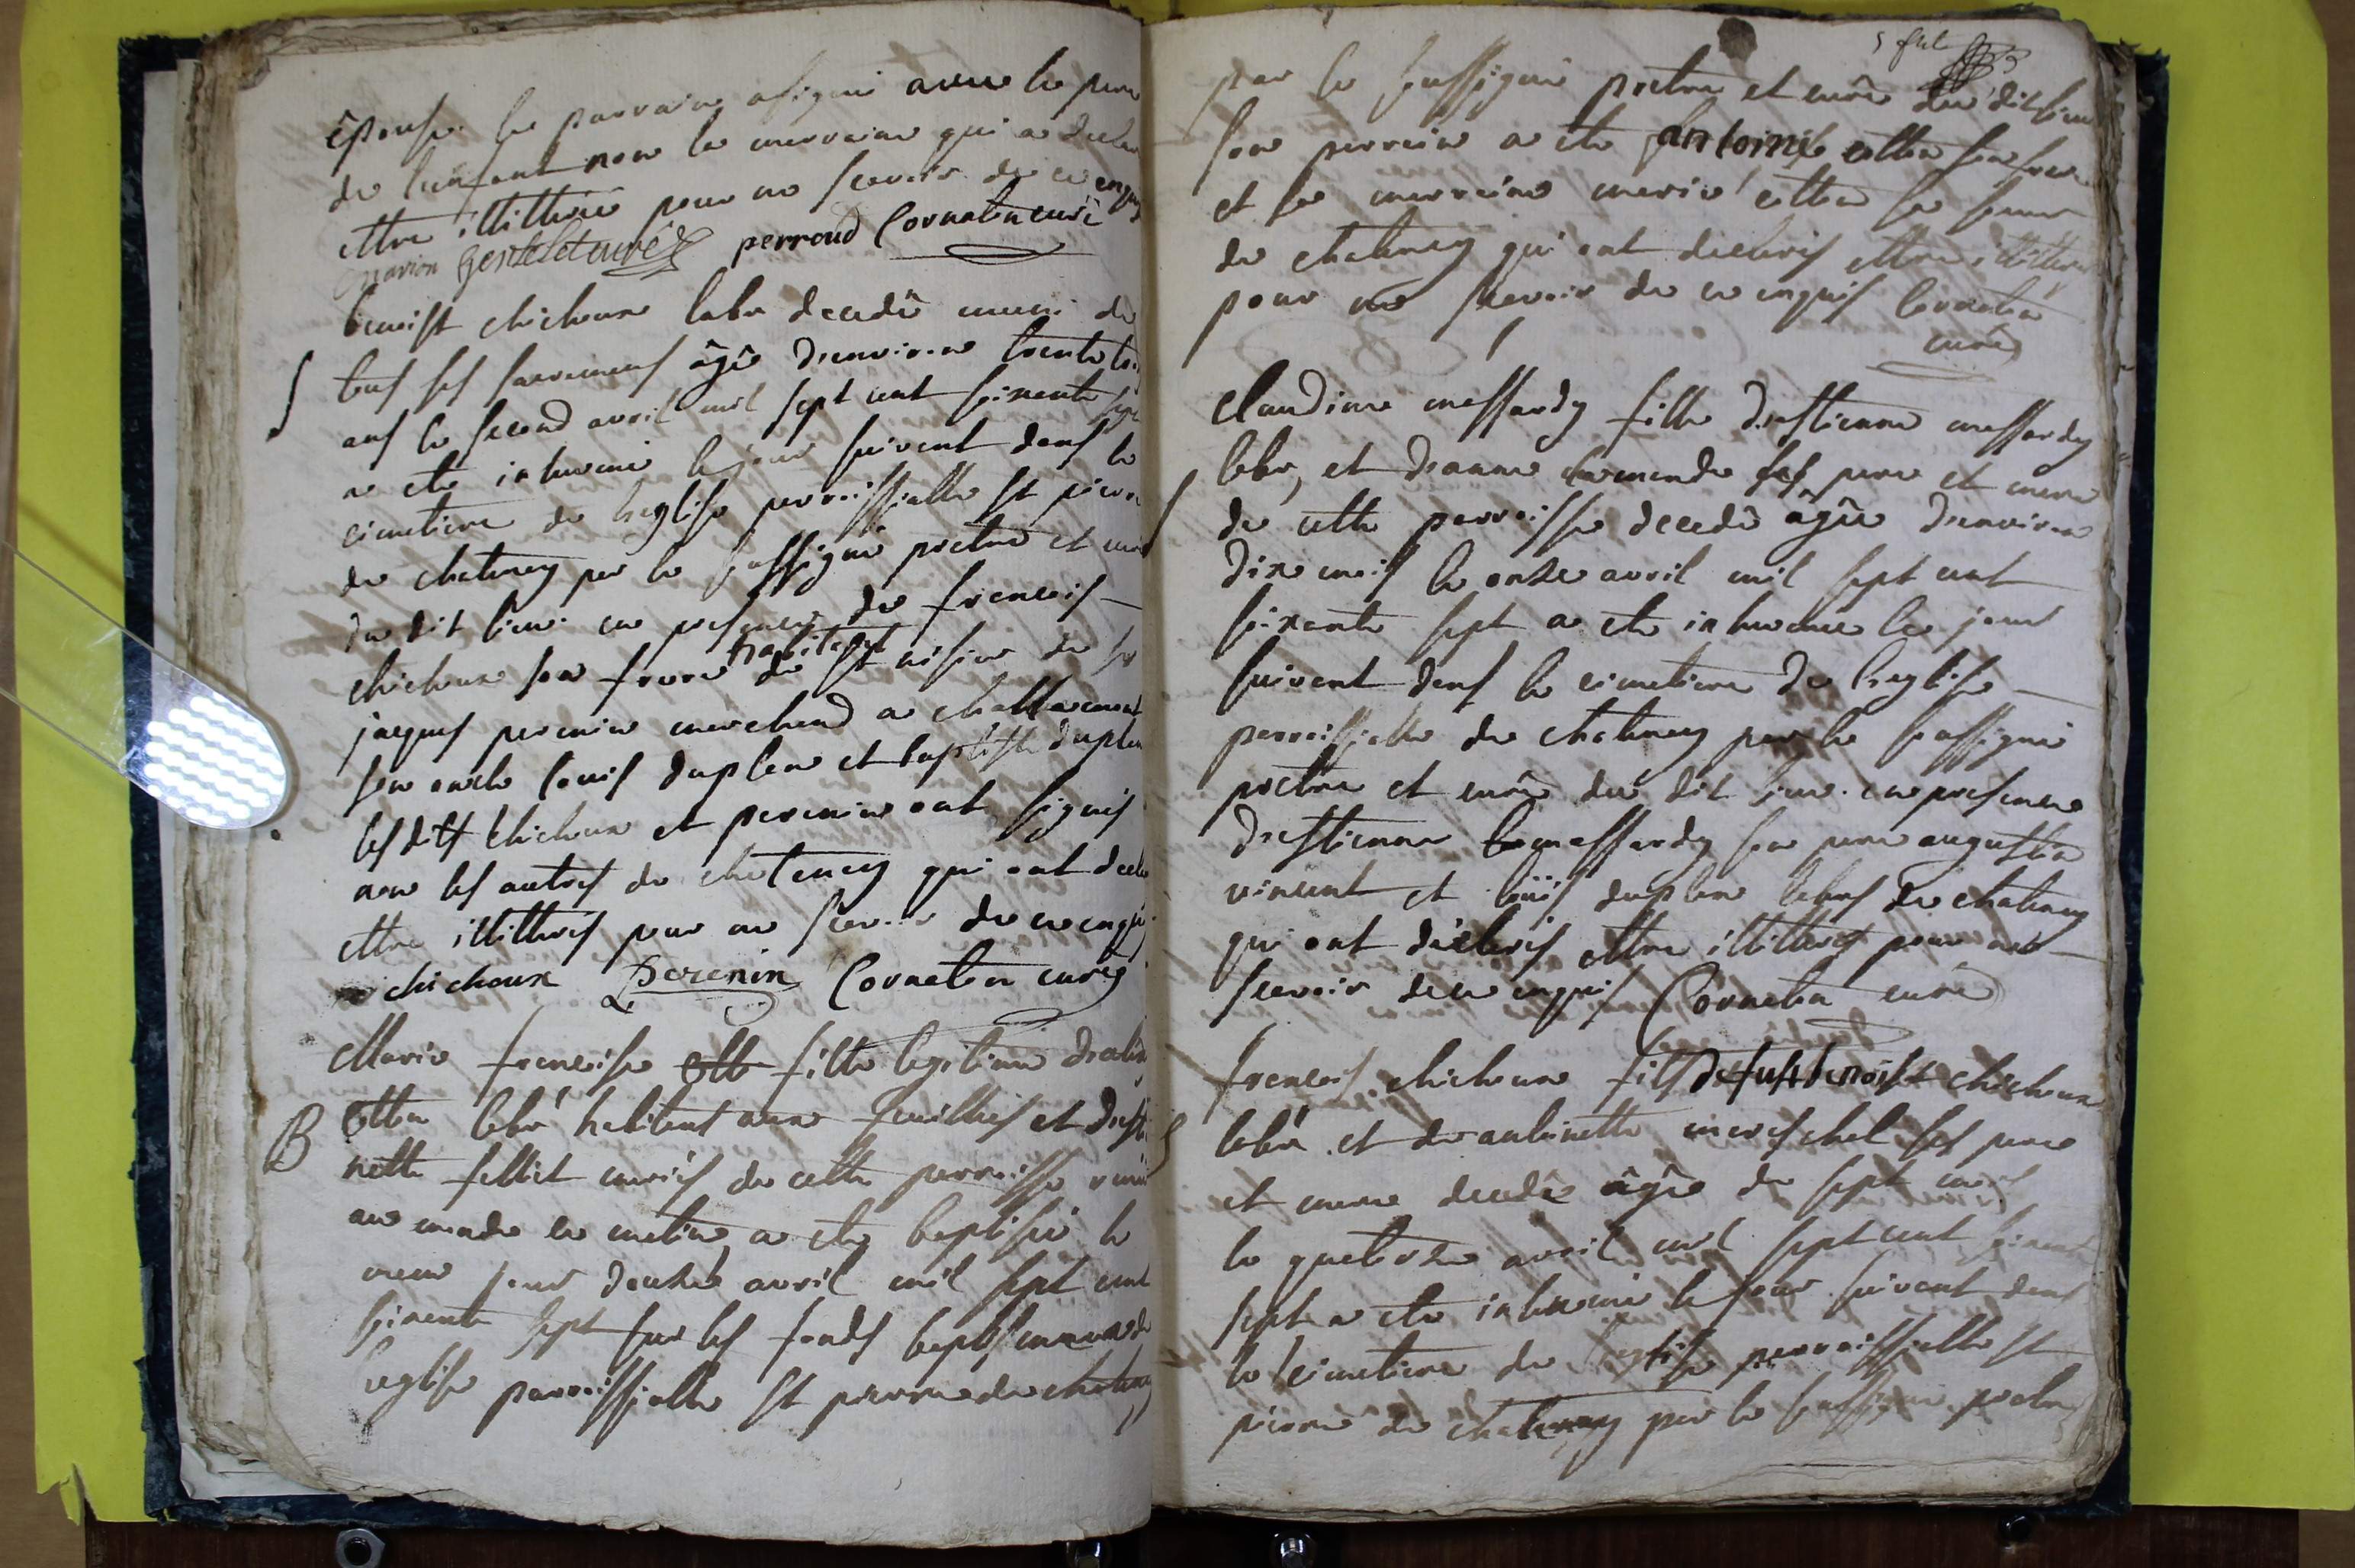 épouse. le parrain a signé avec le pere
de l'enfant non la marraine qui a declar
ettre illitteré pour ne scavoir de ce enquis
marion perroud Cornaton curé
benoist chichoux labr decedé muni de
tous ses sacremens âgé d'environ trente
ans le second avril mil sept cent soixante sept
a ete inhumé le jour suivent dans le
cimetiere de l'eglise perroissialle st pierre
de chatenay par le soussigné pretre et curé
du dit lieu en presence de francois
chichoux son frere habitant de st nisier de
jaques perenin marchand a challamont
son oncle louis duplen et baptiste duplen
les dits chichoux et perenin ont signés
non les autres de chatenay qui ont decla
ettre illitterés pour ne scavoir de ce enquis
chichoux Perenin Cornaton curé
Marie francoise fille legitime
B Ottin labr habitent aux feuilles et
nette fellict mariés de cette perroisse
au monde ce matin a ete baptisée le
meme jour douze avril mil sept cent
sixente sept sur les fonds baptismaux de
l'eglise parroissialle st pierre de chatenay
par le soussigné pretre et curé du dit lieu
son perrein a ete antoine ottin son frere
et sa merreine marie ottin sa soeur
de chatenay qui ont declarés ettre illitterés
pour ne scavoir de ce enquis Cornaton
curé
Claudine messardy fille d'estienne messardy
labr, et d'eanne ses pere et mere
de cette perroisse decedé âgée d'environ
dix mois le onze avril mil sept cent
sixente sept a ete inhumée le jour
suivent dans le cimetiere de l'eglise
perroissialle de chatenay par le soussigné
pretre et curé du dit lieu en presence
d'estienne messardy son pere augustin
vincent et loüis duplen labrs de chatenay
qui ont déclarés ettre illitterés pour ne
scavoir de ce enquis Cornaton curé
francois chichoux fils de fust benoist chichoux
labr et de antoinette mereschel ses pere
et mere decedé âgé de sept mois
le quatorze avril mil sept cent sixente
sept a ete inhumé le jour suivent dans
le cimetiere de l'eglise perroissialle st
pierre de chatenay par le soussigné pretre